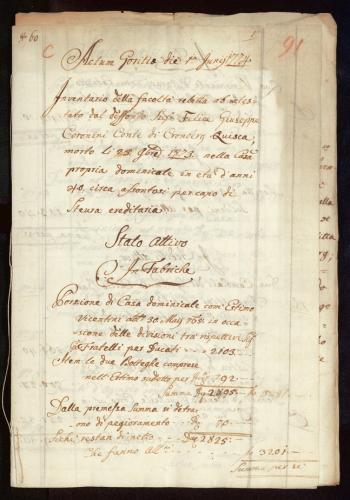 N° 60
1
91
C
Actum Goritia die 1ma Junÿ 1774.
Inventario della facoltà relitta ab intes-
tato dal deffonto Sigr Felice Giuseppe
Coronini Conte di Cronberg Quisca,
morto li 23 1773. nella Casa
propria dominicale in età d'anni
40. circa assontosi per capo di
Steura ereditaria
Stato Attivo
In Fabriche
Porzione di Casa dominicale com' Estimo
Vicentini 30. Maÿ in occa-
scone delle divisioni tra rispettivi
Fratelli per Ducati 2103.
Item le due Botteghe comprese
nell' Estimo sudetto per 792
Summa 2895.
Dalla premessa Summa si detra-
ono di pegioramento 70.
Sicchè restan di netto 2825.
Che fanno 3201
Summa per se